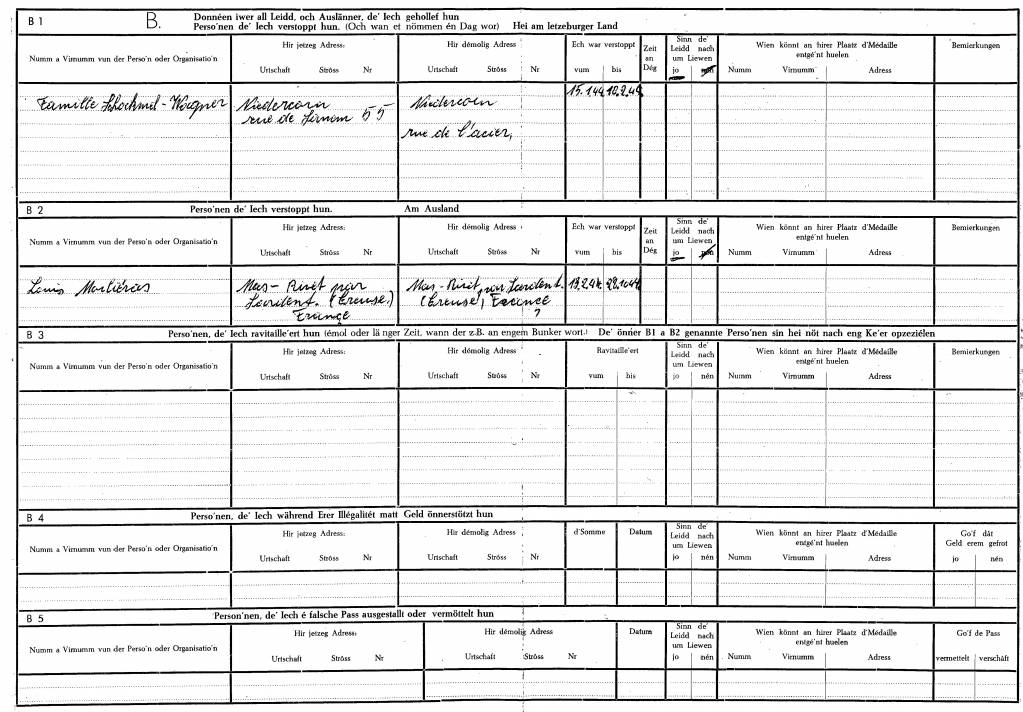 B 1
B.
Donnéen iwer all Leidd, och Auslänner, de' Iech gehollef hun
Perso'nen de' Iech verstoppt hun. (Och wan et nömmen én Dag wor) Hei am letzeburger Land
Numm a Virnumm vun der Perso'n oder Organisatio'n
Hir jetzeg Adress:
Urtschaft Ströss Nr
Hir démolig Adress
Urtschaft Ströss Nr
Ech war verstoppt
vum bis
Zeit
an
Dég
Sinn de'
Leidd nach
um Liewen
jo nén
Wien könnt an hirer Plaatz d'Médaille
entgé'nt huelen
Numm Virnumm Adress
Bemierkungen
Famille Schockmel - Wagner
Niedercorn
rue de 55
Niedercorn
rue de l'acier,
15.1.44 10.2.44
B 2
Perso'nen de' Iech verstoppt hun. Am Ausland
Numm a Virnumm vun der Perso'n oder Organisatio'n
Hir jetzeg Adress:
Urtschaft Ströss Nr
Hir démolig Adress
Urtschaft Ströss Nr
Ech war verstoppt
vum bis
Zeit
an
Dég
Sinn de'
Leidd nach
um Liewen
jo nén
Wien könnt an hirer Plaatz d'Médaille
entgé'nt huelen
Numm Virnumm Adress
Bemierkungen
Louis
Mas - par
(Creuse.)
France
Mas - par
(Creuse) France
?
13.2.44 28.10.44
B 3
Perso'nen, de' Iech ravitaille'ert hun (émol oder lä nger Zeit, wann der z.B. an engem Bunker wort.) De' önnier B1 a B2 genannte Perso'nen sin hei nöt nach eng Ke'er opzeziélen
Numm a Virnumm vun der Perso'n oder Organisatio'n
Hir jetzeg Adress:
Urtschaft Ströss Nr
Hir démolig Adress
Urtschaft Ströss Nr
Ravitaille'ert
vum bis
Sinn de'
Leidd nach
um Liewen
jo nén
Wien könnt an hirer Plaatz d'Médaille
entgé'nt huelen
Numm Virnumm Adress
Bemierkungen
B 4
Perso'nen, de' Iech während Erer Illégalitét matt Geld önnerstötzt hun
Numm a Virnumm vun der Perso'n oder Organisatio'n
Hir jetzeg Adress:
Urtschaft Ströss Nr
Hir démolig Adress
Urtschaft Ströss Nr
d'Somme
Datum
Sinn de'
Leidd nach
um Liewen
jo nén
Wien könnt an hirer Plaatz d'Médaille
entgé'nt huelen
Numm Virnumm Adress
Go'f dât
Geld erem gefrot
jo nén
B 5
Person'nen, de' Iech é falsche Pass ausgestallt oder vermöttelt hun
Numm a Virnumm vun der Perso'n oder Organisatio'n
Hir jetzeg Adress:
Urtschaft Ströss Nr
Hir démolig Adress
Urtschaft Ströss Nr
Datum
Sinn de'
Leidd nach
um Liewen
jo nén
Wien könnt an hirer Plaatz d'Médaille
entgé'nt huelen
Numm Virnumm Adress
Go'f de Pass
vermettelt verschâft